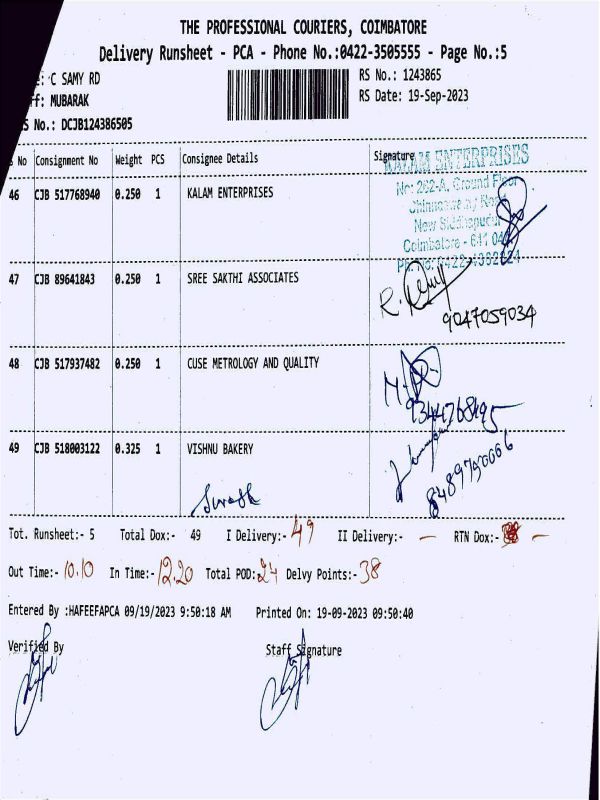 THE PROFESSIONAL COURIERS, COIMBATORE
Delivery Runsheet - PCA - Phone No.:0422-3505555 - Page No.:5
: C SAMY RD
RS No.: 1243865
ff: MUBARAK
RS Date: 19-Sep-2023
S No.: DCJB124386505
No Consignment No Weight PCS Consignee Details Signature
KALAM ENTERPRISES
46 CJB 517768940 0.250 1 KALAM ENTERPRISES
No: 282-A, Ground Floor
New Siddhapudur
Coimbatore - 641 044
47 CJB 89641843 0.250 1 SREE SAKTHI ASSOCIATES
R.
9047059034
48 CJB 517937482 0.250 1 CUSE METROLOGY AND QUALITY
9344768495
49 CJB 518003122 0.325 1 VISHNU BAKERY
8489790006
Suresh
Tot. Runsheet:- 5 Total Dox:- 49 I Delivery:- 49 II Delivery:- — RTN Dox:- —
Out Time:- 10.10 In Time:- 12.20 Total POD:- 24 Delvy Points:- 38
Entered By :HAFEEFAPCA 09/19/2023 9:50:18 AM Printed On: 19-09-2023 09:50:40
Verified By Staff Signature